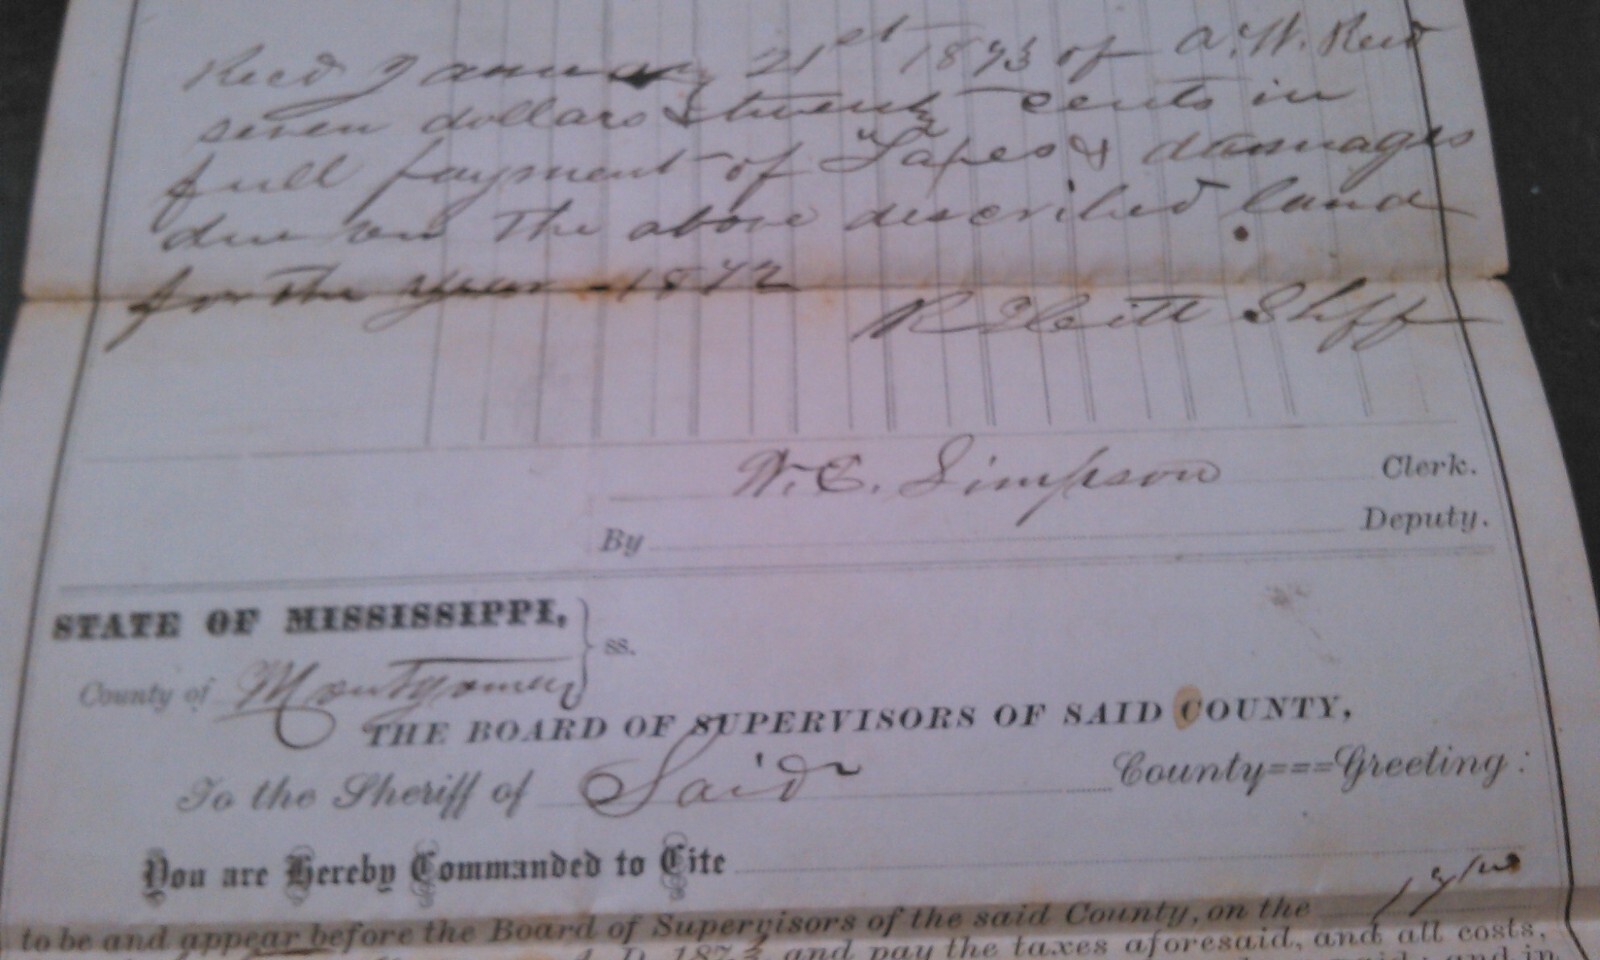 Recd January 21st 1873 of A. W. Reed
seven dollars & twenty cents in
full payment of Taxes & damages
due on the above described land
for the year 1872
Shff
W. C. Simpson Clerk.
By Deputy.
STATE OF MISSISSIPPI,
ss.
County of Montgomery
THE BOARD OF SUPERVISORS OF SAID COUNTY,
To the Sheriff of Said County===Greeting:
You are Hereby Commanded to Cite
to be and appear before the Board of Supervisors of the said County, on the
A. D. 1873, and pay the taxes aforesaid, and all costs,
and in